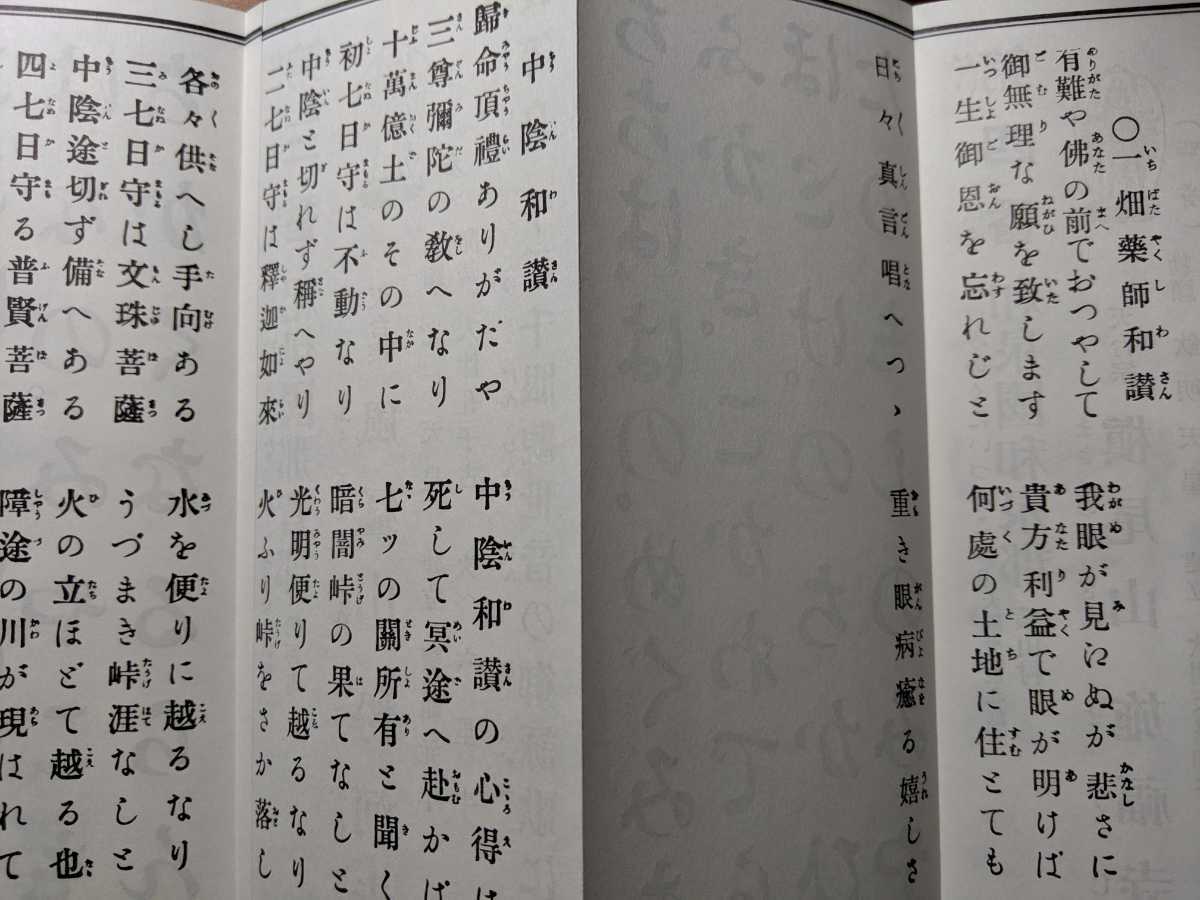 ○一畑藥師和讃
有難や佛の前でおつやして
我眼が見江ぬが悲さに
御無理な願を致します
貴方利益で眼が明けば
一生御恩を忘れじと
何處の土地に住とても
日々真言唱へつゝ
重き眼病癒る嬉しさ
中陰和讃
歸命頂禮ありがだや
中陰和讃の心得は
三尊彌陀の教へなり
死して冥途へ赴かば
十萬億土のその中に
七ッの關所有と聞く
初七日守は不動なり
暗闇峠の果てなしと
中陰と切れず稱へやり
光明便りて越るなり
二七日守は釋迦如來
火ふり峠をさか落し
各々供へし手向ある
水を便りに越るなり
三七日守は文珠菩薩
うづまき峠涯なしと
中陰途切ず備へある
火の立ほどて越る也
四七日守る普賢菩薩
障途の川が現はれて